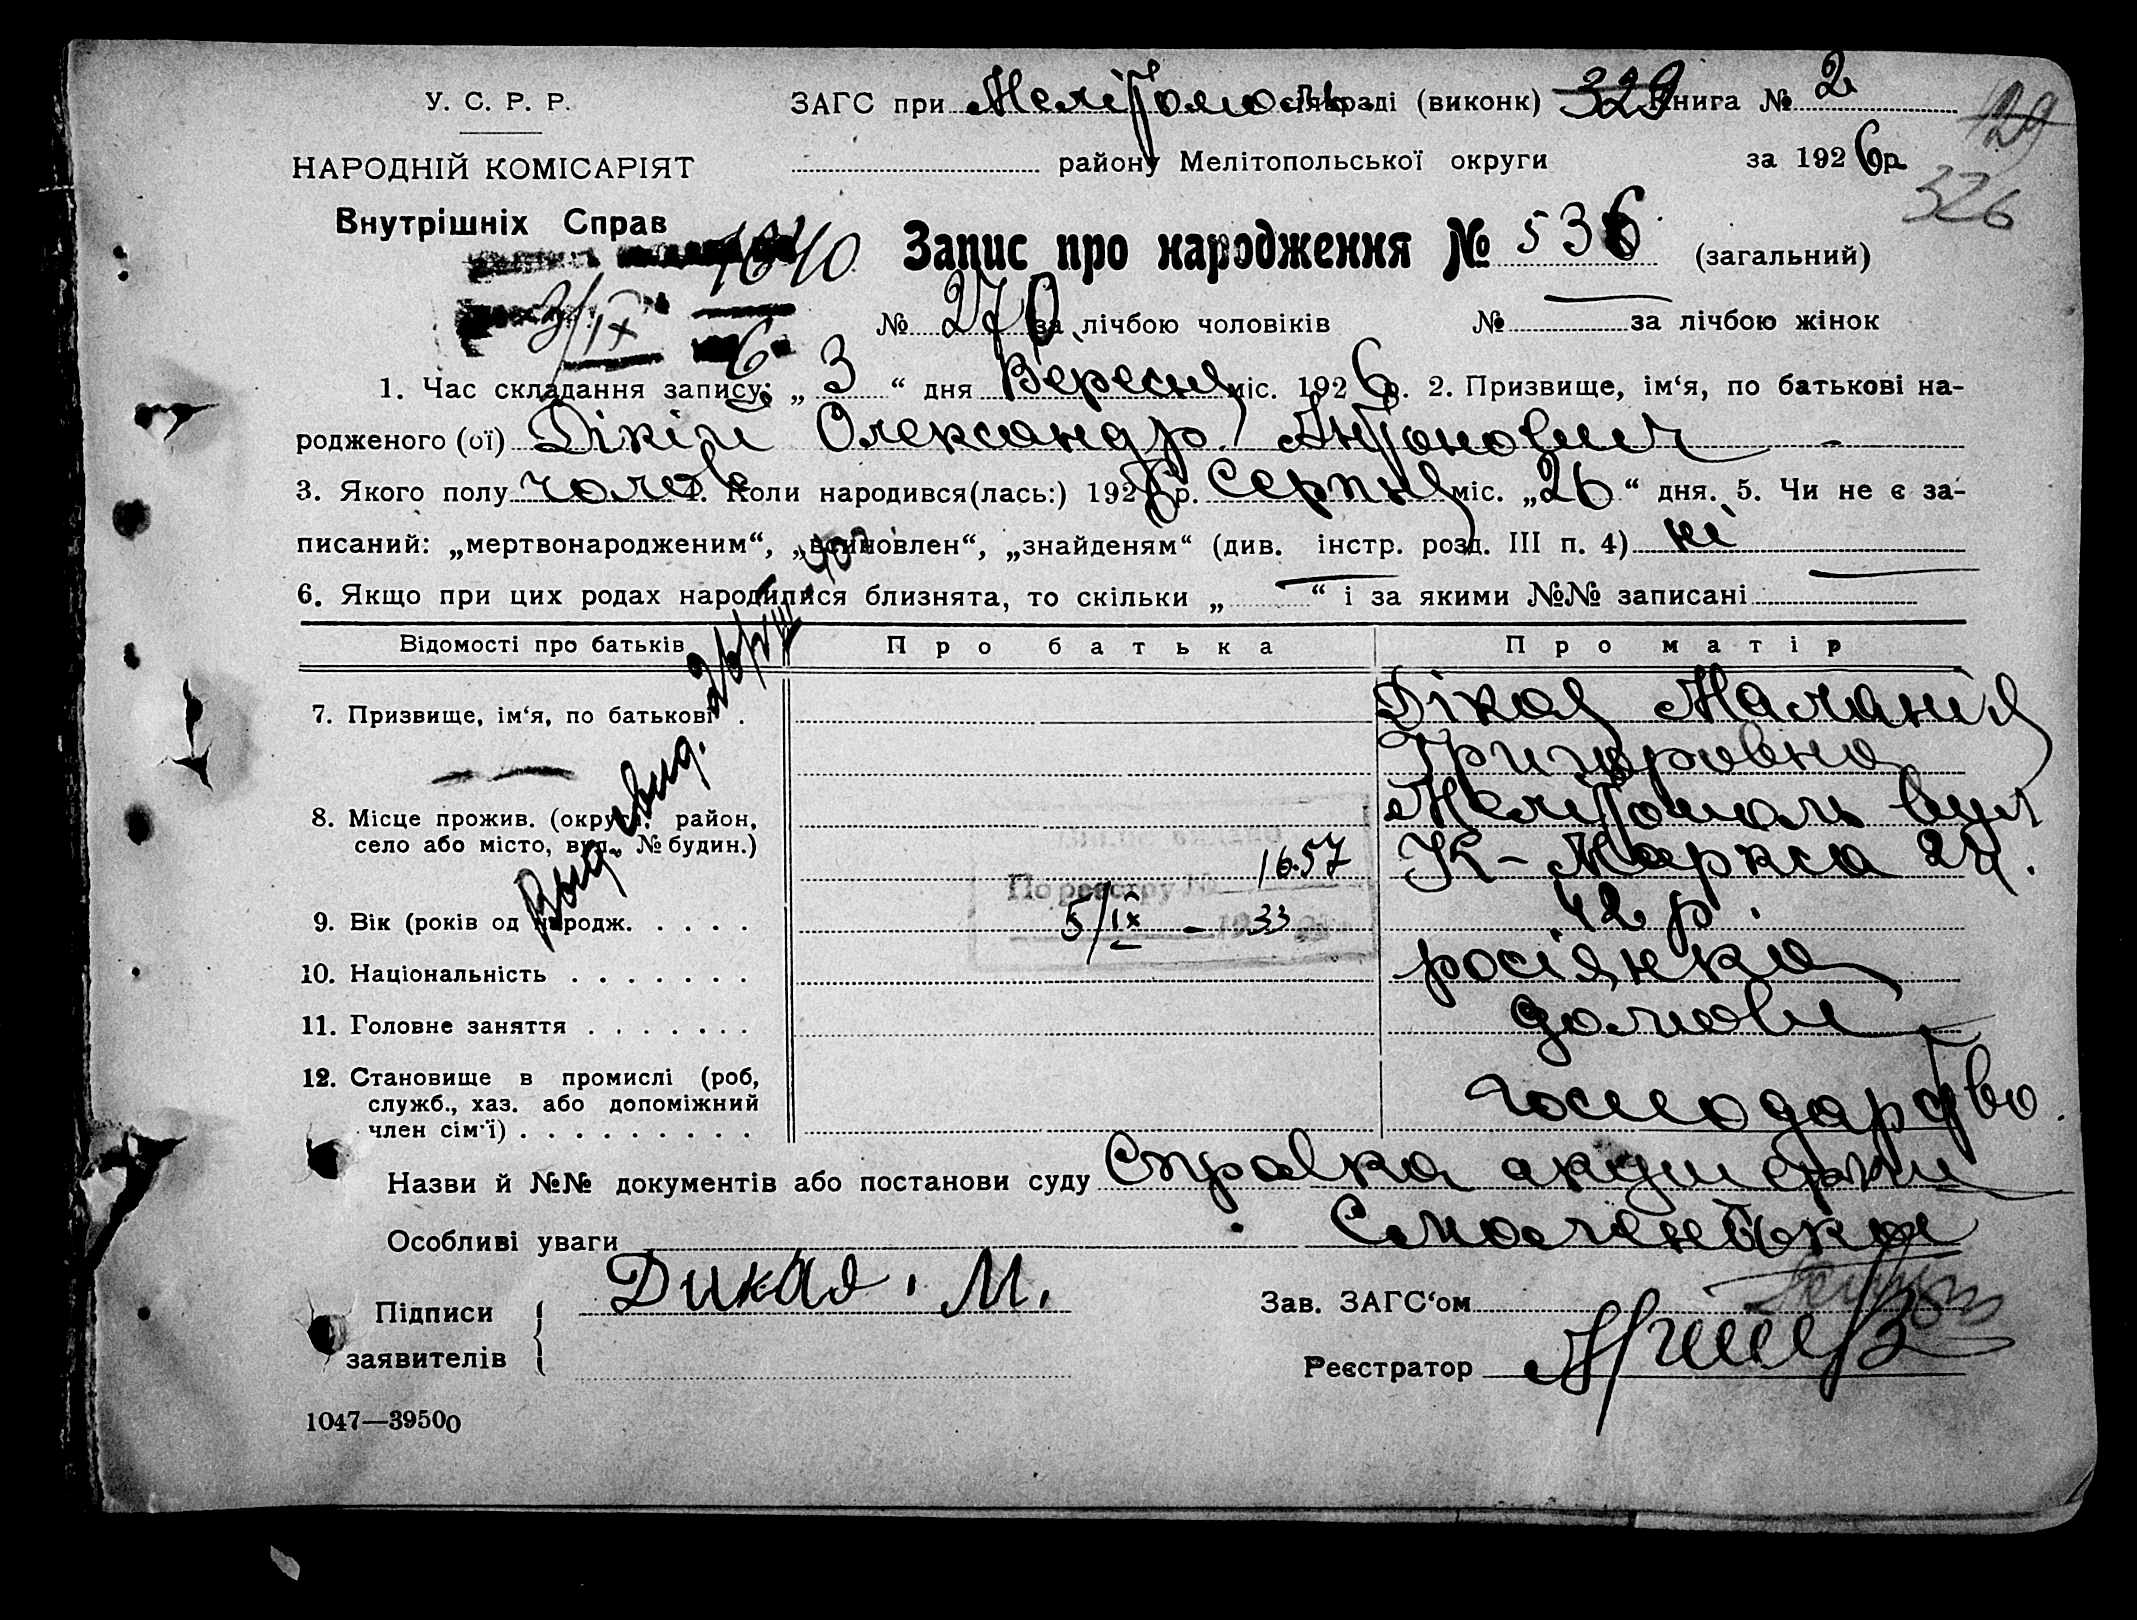 У. С. Р. Р.
ЗАГС при Меліtополь сільраді (виконк) 329 Книга № 2
129
НАРОДНІЙ КОМІСАРІЯТ
району Мелітопольської округи за 1926р.
326
Внутрішніх Справ
1640
Запис про народження № 536 (загальний)
3/IX 6
№ 270 за лічбою чоловіків № — за лічбою жінок
1. Час складання запису: „3“ дня Вересня міс. 1926р. 2. Призвище, ім‘я, по батькові на-
родженого (ої) Дікій Олександр Антонович
3. Якого полу чолов 4. Коли народився(лась:) 1926р. Серпня міс. „26“ дня. 5. Чи не є за-
писаний: „мертвонародженим“, „всиновлен“, „знайденям“ (див. інстр. розд. III п. 4) ні
6. Якщо при цих родах народилися близнята, то скільки „—“ і за якими №№ записані —
Відомості про батьків Про батька Про матір
7. Призвище, ім‘я, по батькові . Дікая Маланія
Григоровна
8. Місце прожив. (округа, район,
село або місто, вул., № будин.)
Мелітополь вул
К-Маркса 24.
По реєстру № 1657
5/IX - 33
Выд свид. 26/VIII 40
9. Вік (років од народж. . . . . 42 р.
10. Національність . . . . . . . росіянка
11. Головне заняття . . . . . . . домове
12. Становище в промислі (роб,
служб., хаз. або допоміжний
член сім‘ї) . . . . . . . . .
господарство.
Назви й №№ документів або постанови суду Справка акушерки
Особливі уваги Смоленської
Підписи
заявителів
Дикая. М.
Зав. ЗАГС‘ом
Реєстратор
1047—39500